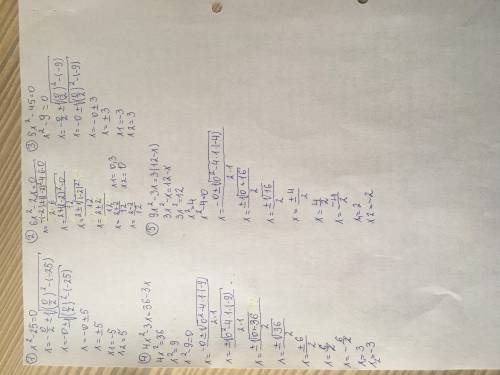 ① x²-25=0
x=-0/2 ±√((0/2)²-(-25))
x=-0±√((0/2)²-(-25))
x=-0±5
x=±5
x=-5
x2=5
② 6x²-2x=0
x=2±√(-2)²-0
12
x=2±√(-2)²
12
x=2±2
12
x=2+2
12
x=2-2
12
x1=0,3
x2=0
③ 5x²-45=0
x²-9=0
x=-0/2 ±√((0/2)²-(-9))
x=-0±√((0/2)²-(-9))
x=-0±3
x=±3
x1=-3
x2=3
④ 4x²-3x=36-3x
4x²=36
x²=9
x²-9=0
x=-0±√0²-4·1·(-9)
2·1
x=±√0²-4·1·(-9)
2·1
x=±√0+36
2
x=±√36
2
x=±6
2
x=6/2
x=-6/2
x=3
x2=-3
⑤ 9x²-3x=3(12-x)
3x²-x=12-x
3x²=12
x²=4
x²-4=0
x=-0±√0²-4·1·(-4)
2·1
x=±√0+16
2
x=±√16
2
x=±4
2
x=4/2
x=-4/2
x=2
x2=-2